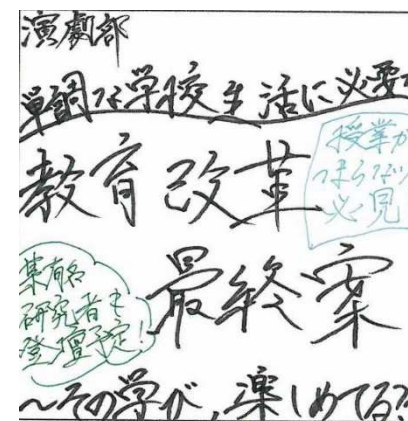 演劇部
単調な学校生活に必要
教育改革
授業が
つまらない
必見
最終案
某有名
研究者も
登壇予定!
~その学び、楽しめてる?